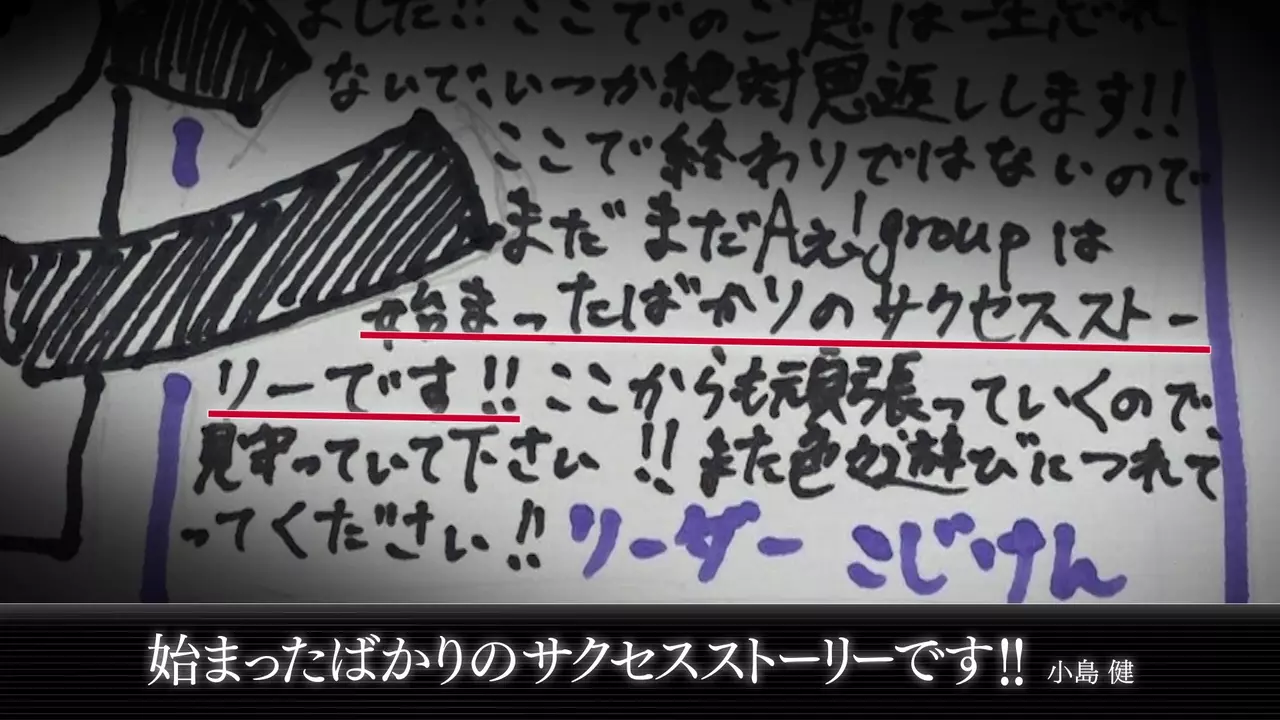 ました!!ここでのご恩は一生忘れ
ないで、いつか絶対恩返しします!!
ここで終わりではないので
まだまだAぇ!groupは
始まったばかりのサクセスストー
リーです!!ここからも頑張っていくので、
見守っていて下さい!!また色々遊びにつれて
ってください!!リーダー こじけん
始まったばかりのサクセスストーリーです!! 小島 健